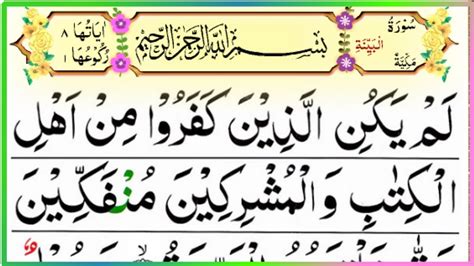 سُوْرَةُ الْبَيِّنَةِ مَكِّيَّةٌ
بِسْمِ اللهِ الرَّحْمٰنِ الرَّحِيْمِ
اٰيَاتُهَا ٨ رُكُوْعُهَا ١
لَمْ يَكُنِ الَّذِيْنَ كَفَرُوْا مِنْ اَهْلِ
الْكِتٰبِ وَالْمُشْرِكِيْنَ مُنْفَكِّيْنَ